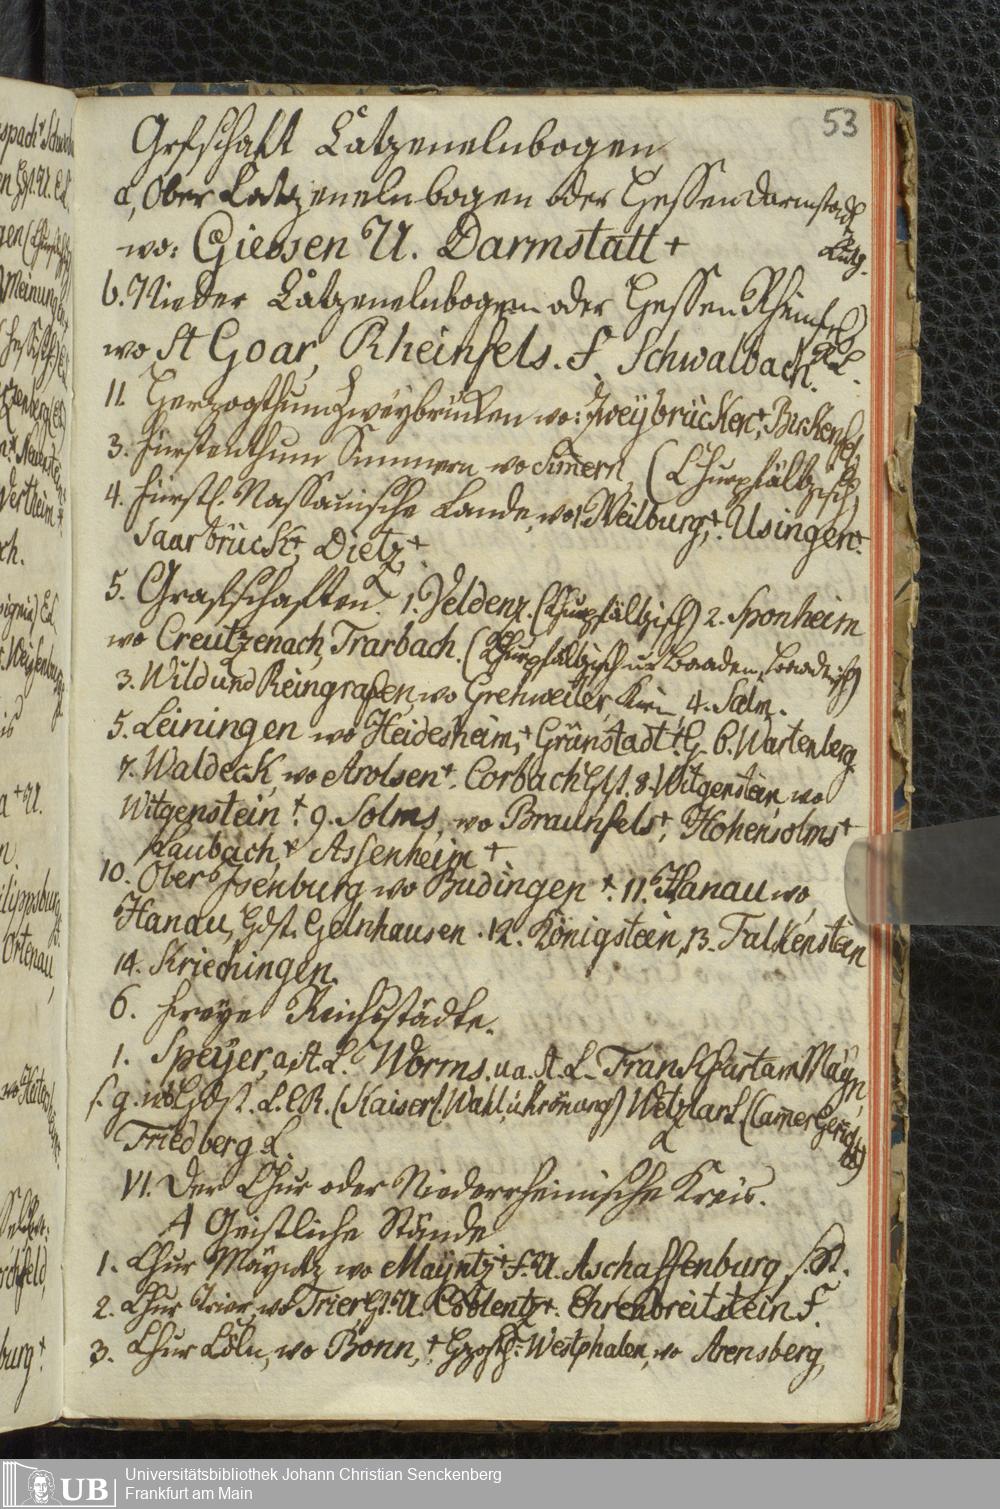 53
Grfschaft Catzenelnbogen
a, Ober Catzenelnbogen oder Hessen Darmstadt
wo: Giessen U. Darmstatt +
b. Nieder Catzenelnbogen oder Hessen Rheinfels
wo St Goar, Rheinfels. F. Schwalbach.
11. Herzogthum Zweybrücken wo: Zweybrücken +, Birkenfel
3. Fürstenthum Simmern wo Simern (Churpfältzisch)
4. Fürstl. Nassauische Lande, wo 1. Weilburg +. Usingen +.
Saarbrück +, Dietz +.
5. Grafschaften. 1. Veldenz. (Churpfältzisch) 2. Sponheim
wo Creutzenach, Trarbach. (Churpfältzisch u Baaden Baadisch)
3. Wild und Reingrafen, wo Grehweiler, Kirn, 4. Salm.
5. Leiningen wo Heidesheim, + Grünstadt +. G. 6. Wartenberg
7. Waldeck, wo Arolsen +. Corbach 8. Witgenstein, wo
Witgenstein +. 9. Solms, wo Braunfels +, Hohensolms +
Laubach, + Assenheim +.
10. Ober Isenburg wo Büdingen +. 11. Hanau wo,
Hanau, Gelnhausen. 12. Königstein, 13. Falkenstein
14. Kriechingen.
6. Freye Reichsstädte.
1. Speyer, a. St. L. Worms. u a. St. L. Franckfurt am Mayn,
(Kaiserl. Wahl, u Krönung) Wetzlar L (Camer Gerichte)
Friedberg L.
VI. Der Chur oder Niederrheinische Kreis.
A Geistliche Stände
1. Chur Mäyntz wo Mayntz + F. U. Aschaffenburg S. St.
2. Chur Trier, wo Trier U. Coblentz +. Ehrenbreitstein F.
3. Chur Cöln, wo Bonn, +. Hzgth: Westphalen, wo Arensberg,
UB
Universitätsbibliothek Johann Christian Senckenberg
Frankfurt am Main